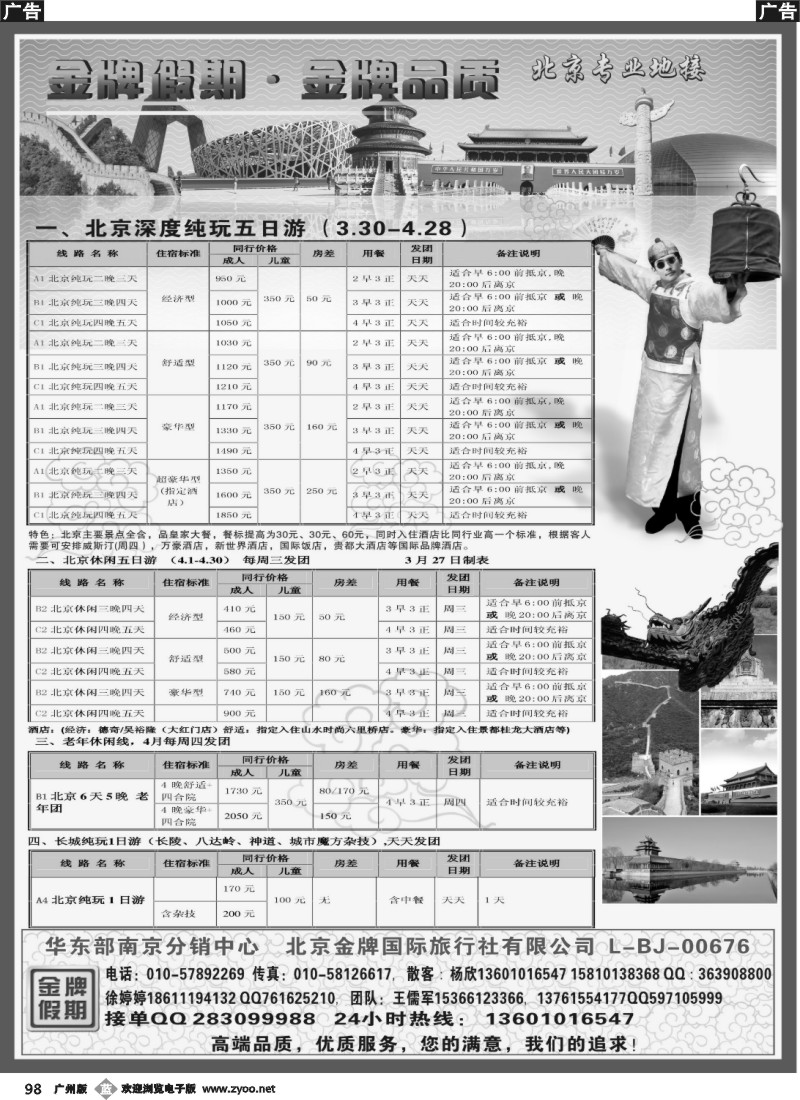 广告
广告
金牌假期·金牌品质
北京专业地接
一、北京深度纯玩五日游（3.30-4.28）
线 路 名 称 住宿标准 同行价格 房差 用餐 发团日期 备注说明
成人 儿童
A1 北京纯玩二晚三天 经济型 950 元 350 元 50 元 2 早 3 正 天天 适合早 6:00 前抵京,晚 20:00 后离京
B1 北京纯玩三晚四天 1000 元 3 早 3 正 天天 适合早 6:00 前抵京 或 晚 20:00 后离京
C1 北京纯玩四晚五天 1050 元 4 早 3 正 天天 适合时间较充裕
A1 北京纯玩二晚三天 舒适型 1030 元 350 元 90 元 2 早 3 正 天天 适合早 6:00 前抵京,晚 20:00 后离京
B1 北京纯玩三晚四天 1120 元 3 早 3 正 天天 适合早 6:00 前抵京 或 晚 20:00 后离京
C1 北京纯玩四晚五天 1210 元 4 早 3 正 天天 适合时间较充裕
A1 北京纯玩二晚三天 豪华型 1170 元 350 元 160 元 2 早 3 正 天天 适合早 6:00 前抵京,晚 20:00 后离京
B1 北京纯玩三晚四天 1330 元 3 早 3 正 天天 适合早 6:00 前抵京 或 晚 20:00 后离京
C1 北京纯玩四晚五天 1490 元 4 早 3 正 天天 适合时间较充裕
A1 北京纯玩二晚三天 超豪华型（指定酒店） 1350 元 350 元 250 元 2 早 3 正 天天 适合早 6:00 前抵京,晚 20:00 后离京
B1 北京纯玩三晚四天 1600 元 3 早 3 正 天天 适合早 6:00 前抵京 或 晚 20:00 后离京
C1 北京纯玩四晚五天 1850 元 4 早 3 正 天天 适合时间较充裕
特色：北京主要景点全含，品皇家大餐，餐标提高为30元、30元、60元，同时入住酒店比同行业高一个标准，根据客人
需要可安排威斯汀(周四)，万豪酒店，新世界酒店，国际饭店，贵都大酒店等国际品牌酒店。
二、北京休闲五日游 （4.1-4.30） 每周三发团 3 月 27 日制表
线 路 名 称 住宿标准 同行价格 房差 用餐 发团日期 备注说明
成人 儿童
B2 北京休闲三晚四天 经济型 410 元 150 元 50 元 3 早 3 正 周三 适合早 6:00 前抵京 或 晚 20:00 后离京
C2 北京休闲四晚五天 460 元 4 早 3 正 周三 适合时间较充裕
B2 北京休闲三晚四天 舒适型 500 元 150 元 80 元 3 早 3 正 周三 适合早 6:00 前抵京 或 晚 20:00 后离京
C2 北京休闲四晚五天 580 元 4 早 3 正 周三 适合时间较充裕
B2 北京休闲三晚四天 豪华型 740 元 150 元 160 元 3 早 3 正 周三 适合早 6:00 前抵京 或 晚 20:00 后离京
C2 北京休闲四晚五天 900 元 4 早 3 正 周三 适合时间较充裕
酒店：(经济：德奇/吴裕隆（大红门店）舒适：指定入住山水时尚六里桥店。豪华：指定入住景都桂龙大酒店等)
三、老年休闲线，4月每周四发团
线 路 名 称 住宿标准 同行价格 房差 用餐 发团日期 备注说明
成人 儿童
B1 北京 6 天 5 晚 老年团 4 晚舒适+四合院 1730 元 350 元 80/170 元 4 早 3 正 周四 适合时间较充裕
4 晚豪华+四合院 2050 元 150 元
四、长城纯玩1日游（长陵、八达岭、神道、城市魔方杂技）,天天发团
线 路 名 称 住宿标准 同行价格 房差 用餐 发团日期 备注说明
成人 儿童
A4 北京纯玩 1 日游 170 元 100 元 无 含中餐 天天 1 天
含杂技 200 元
华东部南京分销中心 北京金牌国际旅行社有限公司 L-BJ-00676
金牌假期
电话：010-57892269 传真：010-58126617, 散客：杨欣13601016547 15810138368 QQ：363908800
徐婷婷18611194132 QQ761625210, 团队：王儒军15366123366, 13761554177QQ597105999
接单QQ 283099988 24小时热线： 13601016547
高端品质，优质服务，您的满意，我们的追求！
98 广州版 蓝 欢迎浏览电子版 www.zyoo.net